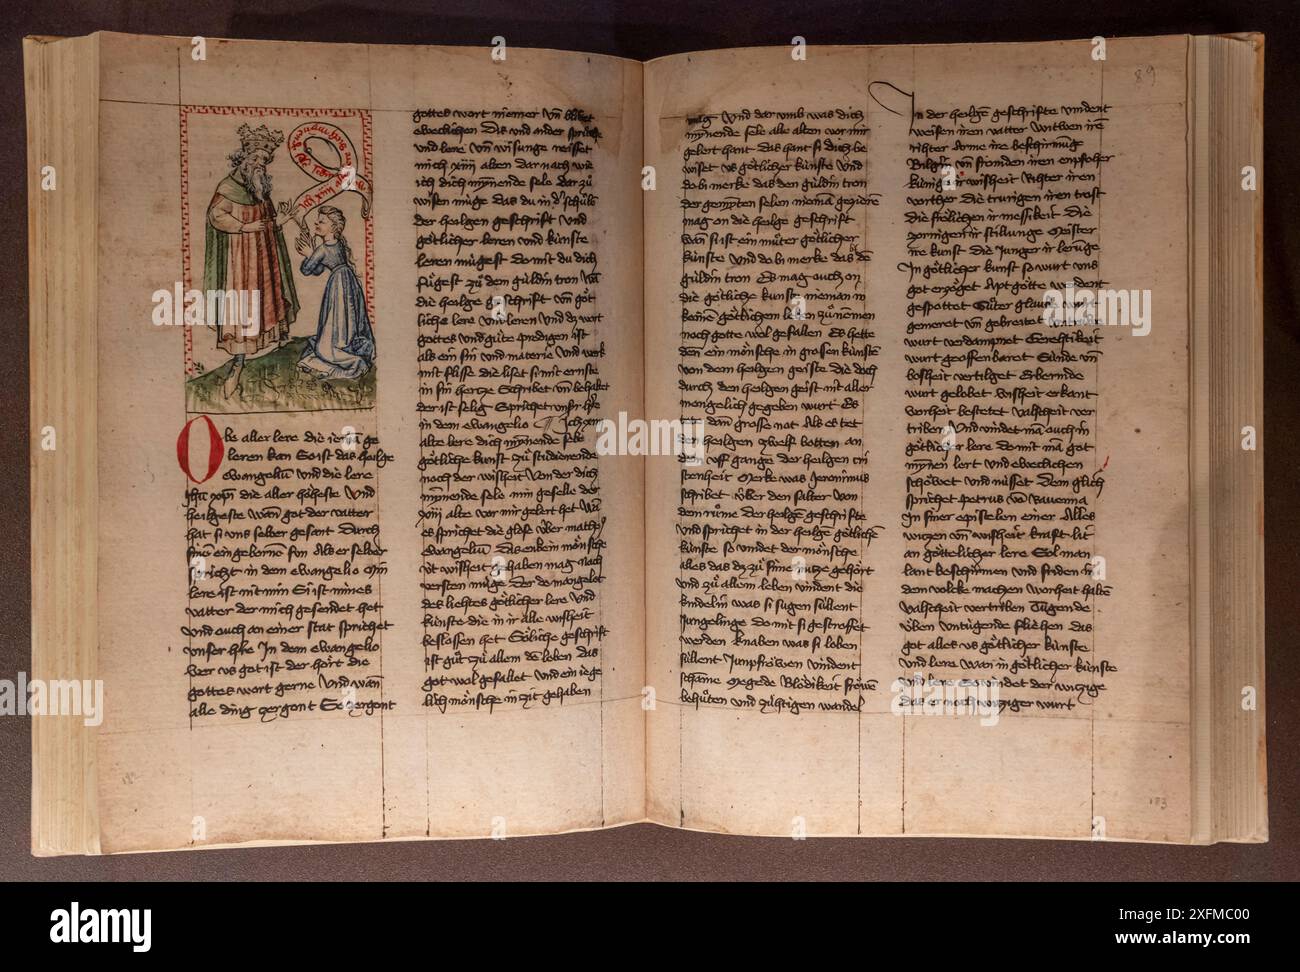 Obe aller lere die ieman ge
leren kan So ist das heilge
Ewangeliū und die lere
die aller höheste Und
heilgeste wan got der vatter
hat si uns selber gesant durch
sinē eingebornē sun Als er selber
spricht in dem ewangelio Min
lere ist nit min Si ist mines
vatter der mich gesendet het
Und ouch an einer stat sprichet
unser hre In dem ewangelio
Wer vs got ist der hört die
gottes wort gerne Und wān
alle ding zergont So zergont
gottes wort niemer vn̄ blibet
eweclichen Das und ander sprüche
und lere vn̄ wisunge wiset
mich xiiij alten dar nach wie
ich dich mynende sele dar zů
wisen müge das du in d' schůle
der heilgen geschrift und
götlicher leren und künste
leren mügest do mit du dich
fügest zů dem güldin tron Wā
die heilge geschrift vn̄ göt
liche lere und leren und dz wort
gottes und gůte predigen ist
als ein sin und materie und werk
mit flisse die liset si mit ernste
in sin hertze Schribet vn̄ behaltet
der ist selig Sprichet unser hre
in dem ewangelio Ich xiiij
alte lere dich mynende sele
götliche kunst zů studierende
noch der wisheit Von der dich
mynende sele min geselle der
xiij alte vor mir gelert het Wā
es sprichet die glose über matheū
Ewangeliū Das enkein mönsche
die wisheit gehaben mag noch
versten müge der do mangelot
des liehtes götlicher lere Und
künste die in ir alle wisheit
beslossen het Söliche geschrift
ist gůt zů allem dē leben das
got wol gefallet und ein iege
lich mönsche in zit gehaben
mag Und dar umb was dich
mynende sele alle alten vor mir
gelert hant das hant si dich be
wiset vs götlicher künste Und
do bi merke das den güldin tron
der gemynten selen niemā gezieren
mag on die heilge geschrift
Wan si ist ein můter götlicher
künste Und do bi merke das dē
güldin tron Es mag ouch on
die götliche kunste nieman in
keinē götlichem leben zů nemen
noch gotte wol gefallen Es hette
den ein mönsche in grossen künstē
von dem heilgen geiste die doch
durch den heilgen geist nit aller
mengelich gegeben wurt Es
tete dan̄ grosse not Als es tet
den heilgen zwelf botten an
den vff gange der heilgen cri
stenheit Merke was Jeronimus
schribet über den salter von
dem růme der heilgē geschrifte
Und sprichet in der heilgē götlichē
künste so vindet der mönsche
alles das dz zů sime nutze gehört
und zů allem leben vindent die
kindelin was si sugen süllent
Jungelinge do mit si gestroffet
werden knaben was si loben
süllent Junpfrowen vindent
schame Megede Blödikeit frowē
behůten und zühtigen wandel
89
In der heilgē geschrifte vindent
weisen iren vatter Witwen irē
richter Arme ire beschirmung
Bilger vn̄ frömden iren enpfoher
künige ir wisheit Rihter iren
vorther die trurigen iren trost
die frölichen ir messikeit Die
zornigen ir stillunge Meister
ire kunst die Junger ir lerunge
In götlicher kunst so wurt uns
got erzöget Apt götte werdent
gespottet Gůter glaube wurt
gemeret vn̄ gebreitet
wurt verdampnet Gerehtikeit
wurt geoffenbaret Sünde vn̄
bosheit vertilget Erbermde
wurt gelobet Wisheit erkant
Worheit bestetet Valscheit ver
triben Und vindet mā ouch in
götlicher lere do mit mā got
mynen lert und eweclichen
schöwet und nüsset Dem glich
sprichet petrus vō Ravenna
In siner epistelen einer Alles
witzen vn̄ wisheit kraft lit
an göttelicher lere Sol man
lant beschirmen und friden in
dem volcke machen Worheit haltē
Valscheit vertriben Tugende
üben Untugende fliehen das
got alles vs götlicher künste
und lere Wan in götlicher künste
und lere So vindet der witzige
Das er noch witziger wurt
183
alamy
Image ID: 2XFMC00
www.alamy.com